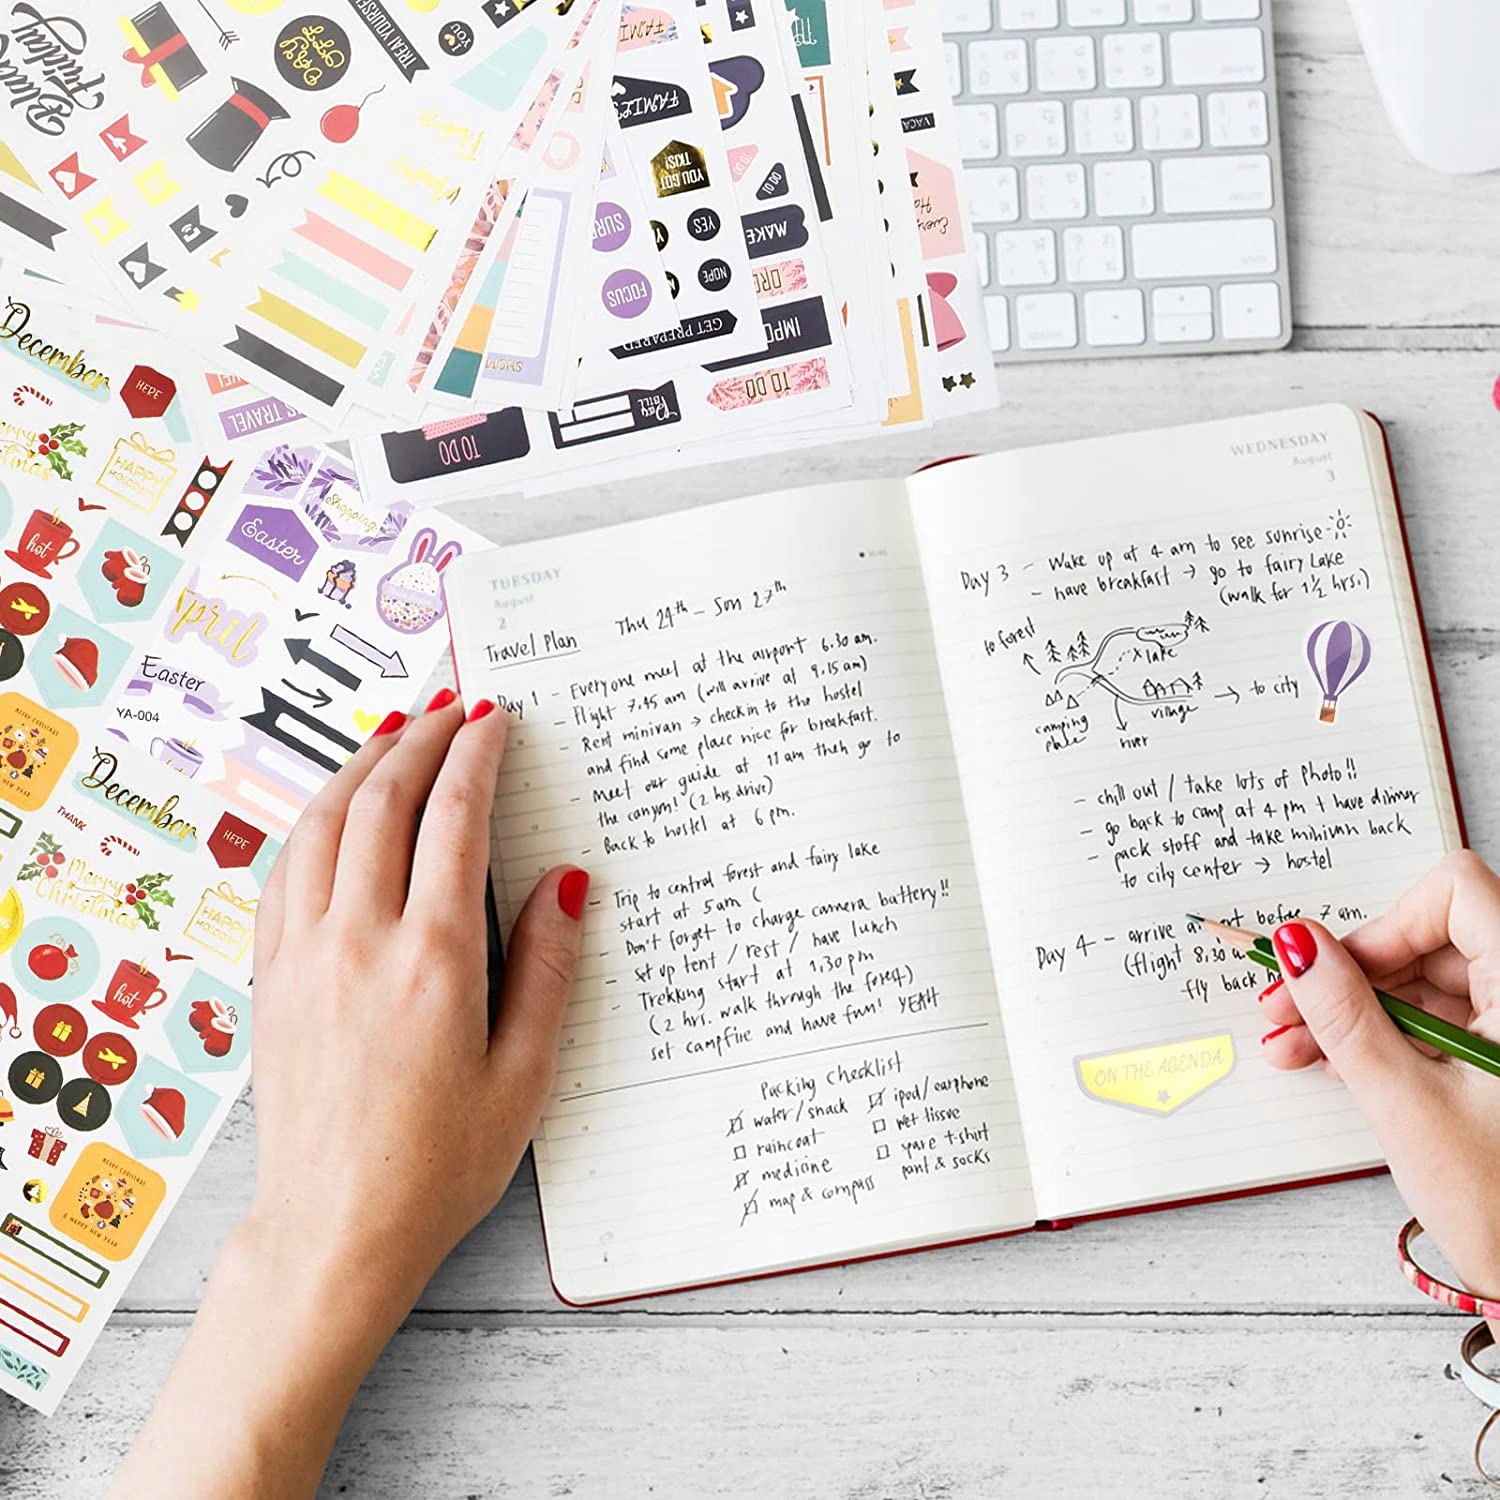 Black
Friday
Day
OFF
TREAT YOURSELF
I
YOU
FAMILY
YOU GOT
THIS!
YES
NOPE
GET PREPARED
FOCUS
TO DO
TO DO
MAKE
TO DO
Pay
BILL
TO DO
TRAVEL
December
HERE
Merry
Christmas
HAPPY
HOLIDAY
hot
Shopping
Easter
April
Easter
YA-004
December
THANK
HERE
Merry
Christmas
HAPPY
HOLIDAY
hot
MERRY CHRISTMAS
& HAPPY NEW YEAR
TUESDAY
August
2
Travel Plan
Thu 24th - Sun 27th
Day 1 - Everyone meet at the airport 6.30 am.
- Flight 7.45 am (will arrive at 9.15 am)
- Rent minivan → checkin to the hostel
and find some place nice for breakfast.
- Meet our guide at 11 am then go to
the canyon! (2 hrs. drive)
- Back to hostel at 6 pm.
- Trip to central forest and fairy lake
start at 5am (
- Don't forget to charge camera battery!!
- set up tent / rest / have lunch
- Trekking start at 1,30 pm
(2 hrs. walk through the forest)
set campfire and have fun! YEAH
Packing Checklist
water/snack
raincoat
medicine
map & compass
ipod/earphone
wet tissue
spare t-shirt
pant & socks
WEDNESDAY
August
3
Day 3 - Wake up at 4 am to see sunrise
- have breakfast → go to fairy Lake
(walk for 1½ hrs.)
to forest
lake
camping
place
village
→ to city
river
- chill out / take lots of photo!!
- go back to camp at 4 pm + have dinner
- pack stuff and take minivan back
to city center → hostel
Day 4 - arrive before 7 am.
(flight 8,30
fly back
ON THE AGENDA